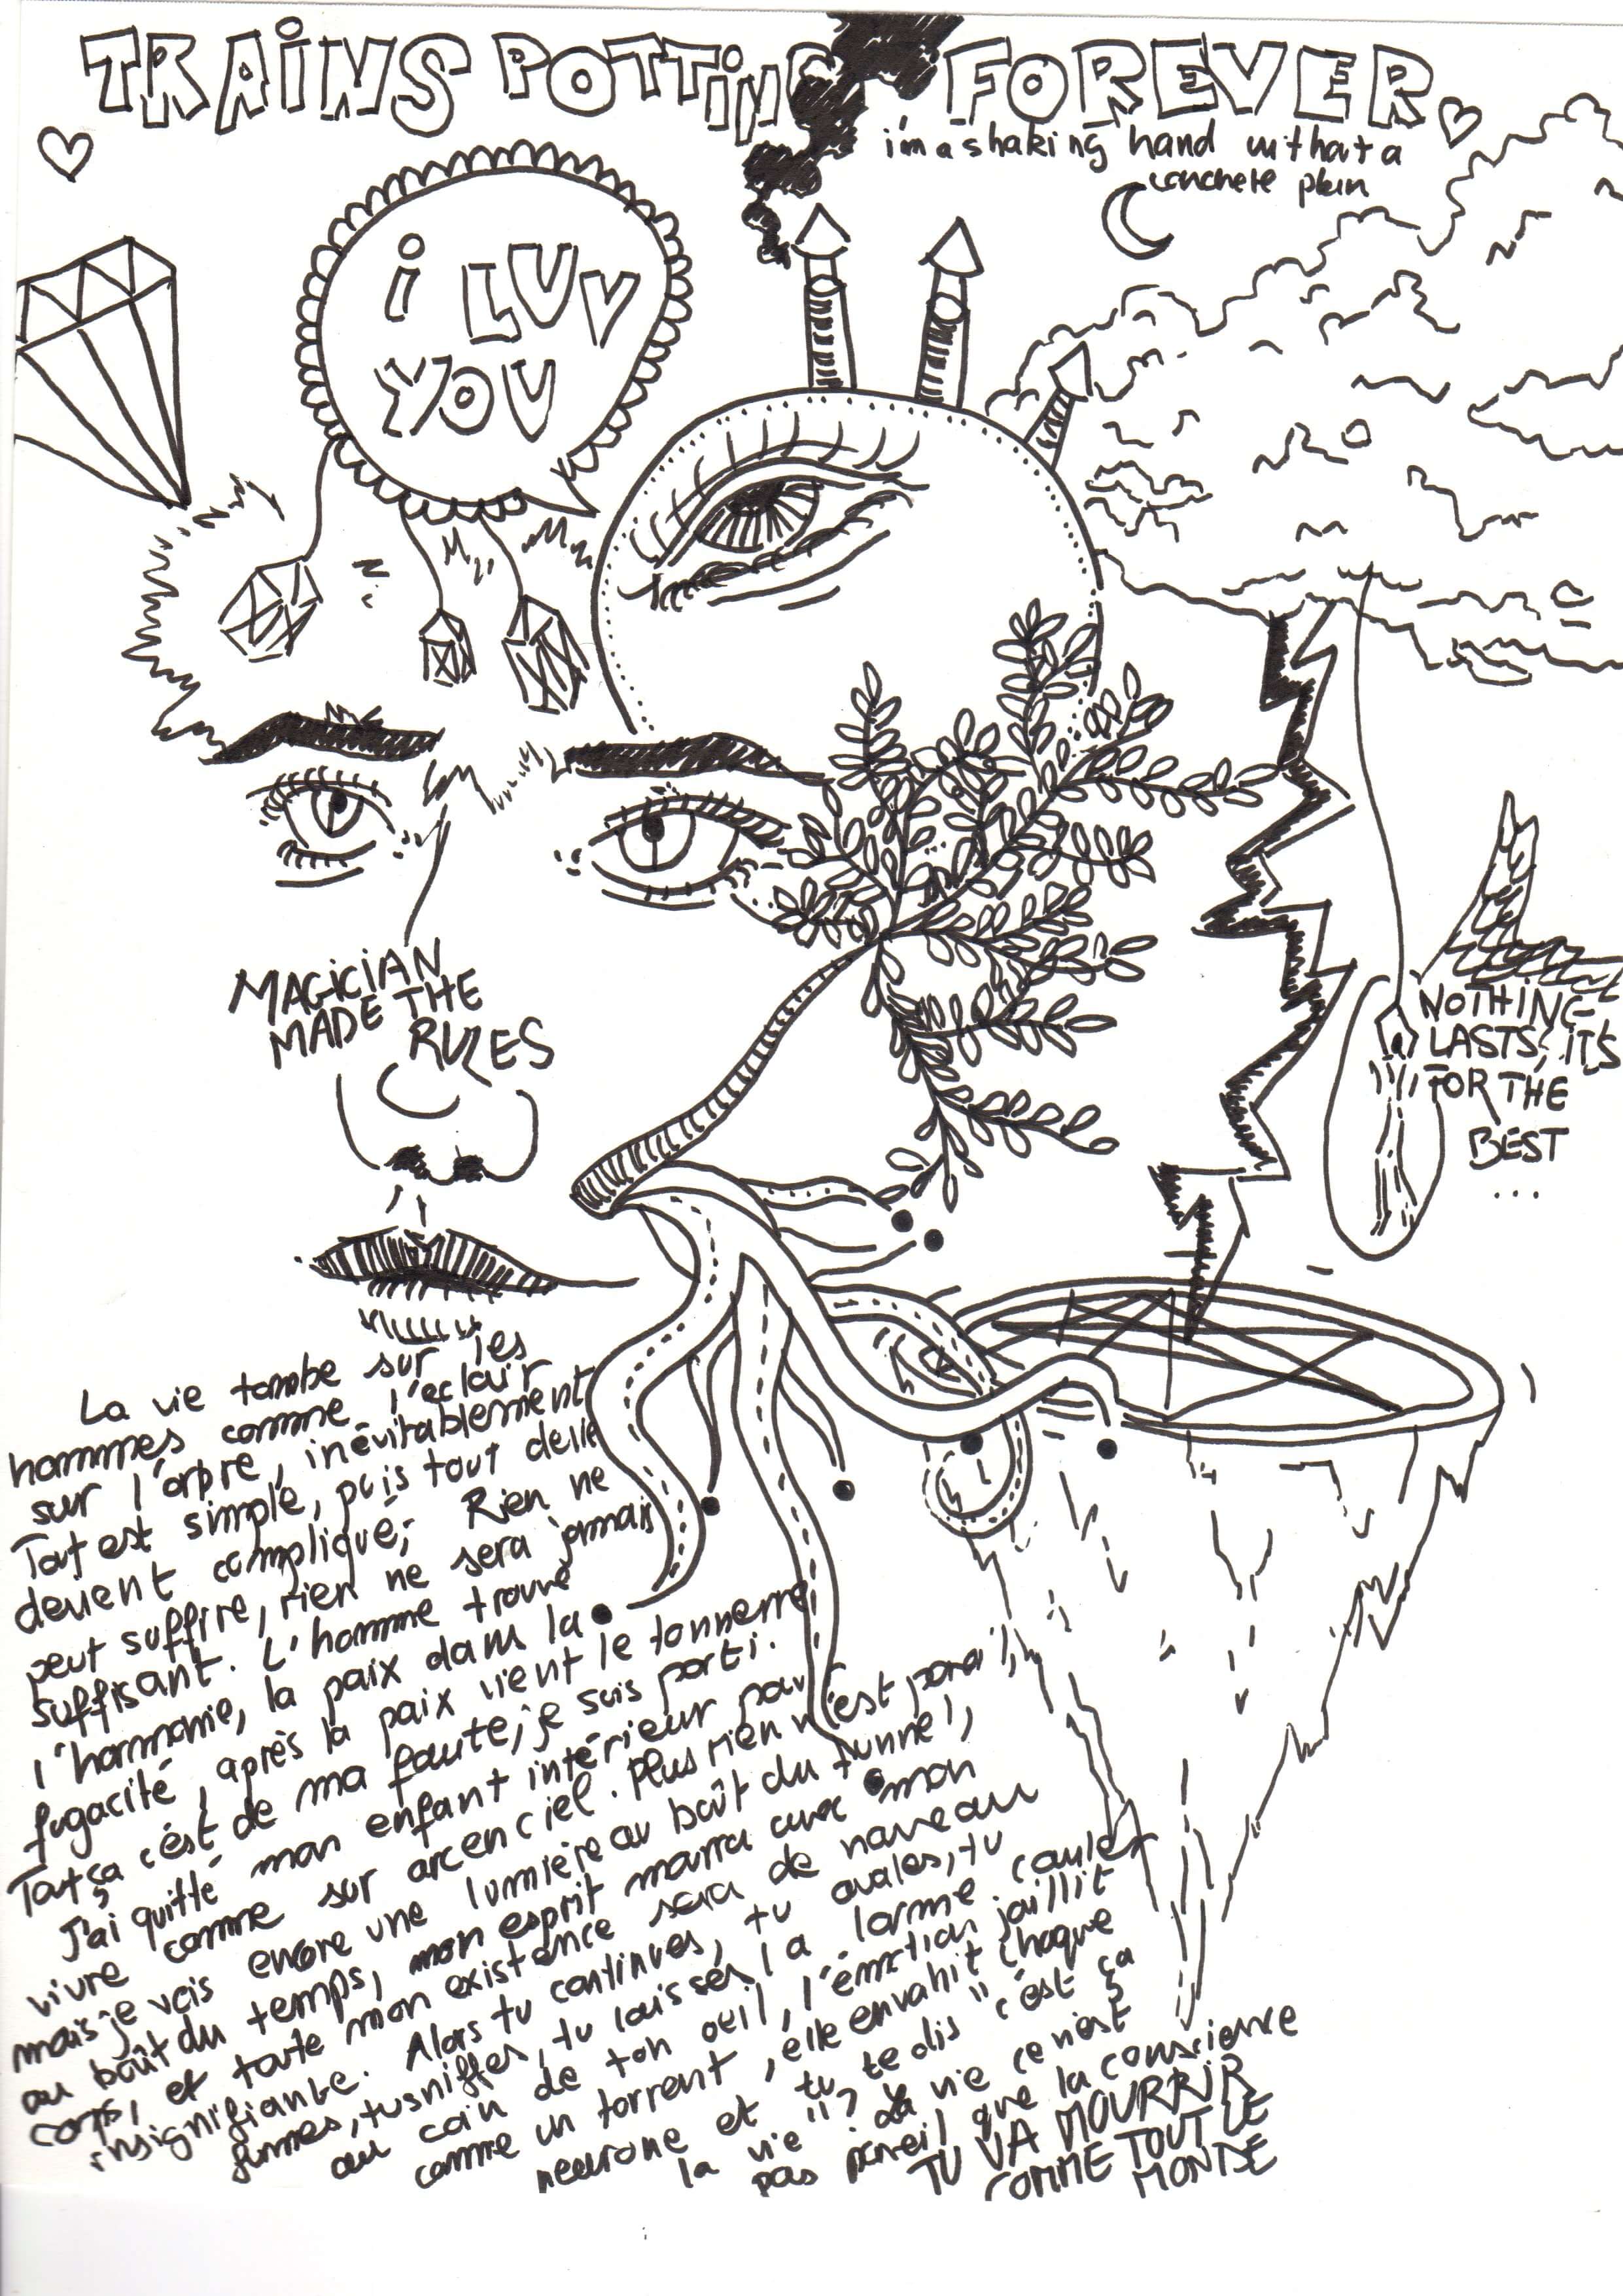 TRAINSPOTTING FOREVER
i'm a shaking hand without a
conchete plein
i LUV
YOU
MAGICIAN
MADE THE
RULES
NOTHING
LASTS, IT'S
FOR THE
BEST
...
La vie tombe sur les
hommes comme l'eclair
sur l'arbre, inévitablement
Tout est simple, puis tout
devient compliqué; Rien ne
peut suffire, rien ne sera jamais
suffisant. L'homme trouve
l'harmonie, la paix dans la
fugacité, après la paix vient le tonnerre,
Tout ça c'est de ma faute, je suis parti.
J'ai quitté mon enfant intérieur pour
vivre comme sur arc en ciel. Plus rien n'est pareil,
mais je vois encore une lumière au boût du tunnel,
au boût du temps, mon esprit mourra avec mon
corps, et toute mon existence sera de nouveau
insignifiante. Alors tu continues, tu avales, tu
fumes, tu sniffes, tu laisses la larme couler
au coin de ton oeil, l'émotion jaillit
comme un torrent, elle envahit chaque
neurone et tu te dis "c'est ça
la vie"? La vie ce n'est
pas pareil que la conscience
TU VA MOURRIR
COMME TOUT LE
MONDE